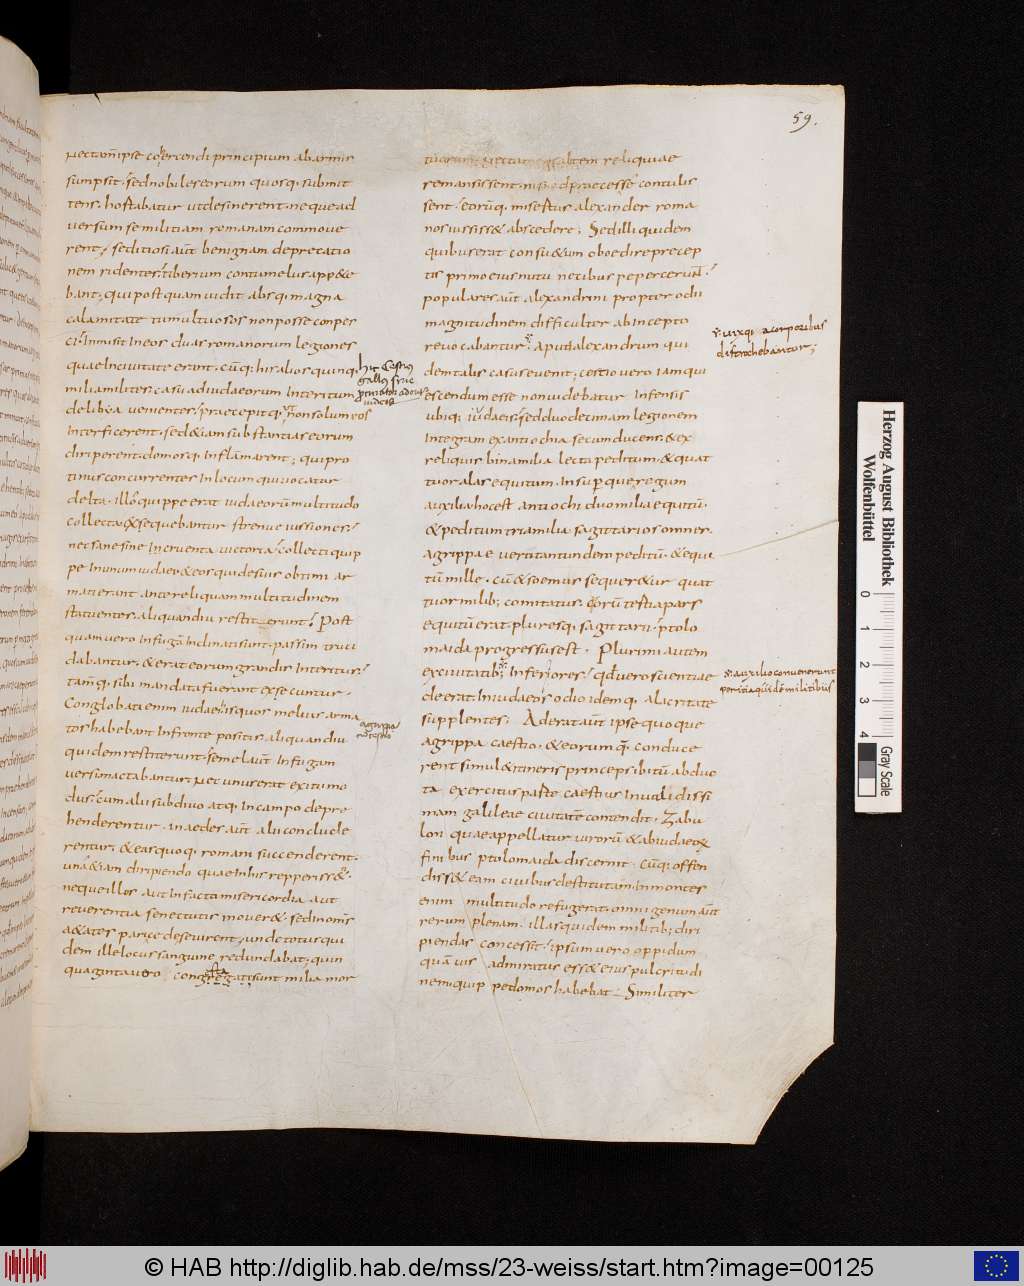 59.
nec tam̄ ipse coercendi principium ab armis
sumpsit. sed nobiles eorum quosq; submit
tens. hostabatur ut desinerent. neque ad
versum se militiam romanam commove
rent; seditiosi aut̄ benignam deprecatio
nem ridentes. tiberium contumeliis app&e
bant; qui postquam vidit absq; magna
calamitate tumultuosos non posse conpes
ci. Inmisit In eos duas romanorum legiones
quae In civitate erant. cū q; his alios quinq;
milia milites. casu ad iudaeorum Interitum
de libia venientes. praecepitq; ut non solum eos
Interficerent. sed &iam substantias eorum
diriperent. domosq; Inflāmarent; qui pro
tinus concurrentes In locum qui vocatur
delta. illo quippe erat iudaeorū multitudo
collecta. exsequebantur strenue iussiones.
nec sane sine Incruenta victoria. collecti quip
pe In unum iudaei. & eos qui desuis obtimi ar
mati erant ante reliquam multitudinem
statuentes. aliquandiu restiterunt. Post
quam vero In fugā Inclinati sunt. passim truci
dabantur. & erat eorum grandis Interitus.
tamq; sibi mandata fuerant exsecuntur.
Conglobati enim iudaei. is quos melius arma
tos habebant In fronte positis. aliquandiu
quidem restiterunt. semel aut̄ In fugam
versi mactabantur. nec unus erat exitii mo
dus. cum alii sub divo atq; In campo depre
henderentur. In aedes aut̄ alii conclude
rentur. & eas quoq; romani succenderent.
una &iam diripiendo quae In his repperiss&.
neque illos aut In facta misericordia aut
reverentia senectutis mover&. sed In omīs
a&ates pari cede sevirent; unde totus qui
dem ille locus sanguine redundabat; quin
quaginta vero congregati sunt milia mor
hic Cestius
gallus sirie
procurator ad
iudeis
agrippa
cū cestio
tuorum; nec tam̄ quidem reliquiae
remansissent. nisi ad preces se contulis
sent. eorūq; misertus alexander roma
nos iussiss& abscedere; Sed illi quidem
quibus erat consu&um oboedire precep
tis primo eius nutu necibus pepercerunt.
populares aut̄ alexandrini propter odii
magnitudinem difficulter ab Incepto
revocabantur. Aput alexandrum qui
dem talis casus evenit; cestio vero iam qui
escendum esse non videbatur Infensis
ubiq; iudaeis. sed duodecimam legionem
Integram ex antiochia secum ducens. & ex
reliquis bina milia lecta peditum. & quat
tuor alas equitum. Insup̄que regum
auxilia. hoc est antiochi duo milia equitū.
& peditum tria milia sagittarios omnes.
agrippae vero tantundem peditū. & equi
tū mille. cū & soemus sequer&ur quat
tuor milib; comitatus. quorū tertia pars
equitū erat. pluresq; sagittarii. ptolo
maida progressus est. Plurimi autem
ex civitatib; Inferiores. qd̄ vero scientiae
deerat. In iudaeos odio idemq; alacritate
supplentes. Aderat aut̄ ipse quoque
agrippa caestio. & eorum q̄ conduce
rent simul & itineris princeps. ibi tū abduc
ta exercitus parte caestius In validissi
mam galileae civitatē contendit. Zabu
lon quae appellatur virorū & ab iudaeo&
finibus ptolomaida discernit. cūq; offen
diss& eam civibus destitutam. In montes
enim multitudo refugerat. omni genum aut̄
rerum plenam. illas quidem militib; diri
piendas concessit. ipsum vero oppidum
quāvis admiratus ess& eius pulcritudi
nem quip pe domos habebat. Similiter
vix q; a corporibus
distrahebantur;
auxilio convenerunt
peritia quidē militibus
Herzog August Bibliothek
Wolfenbüttel
0 1 2 3 4
Gray Scale
© HAB http://diglib.hab.de/mss/23-weiss/start.htm?image=00125